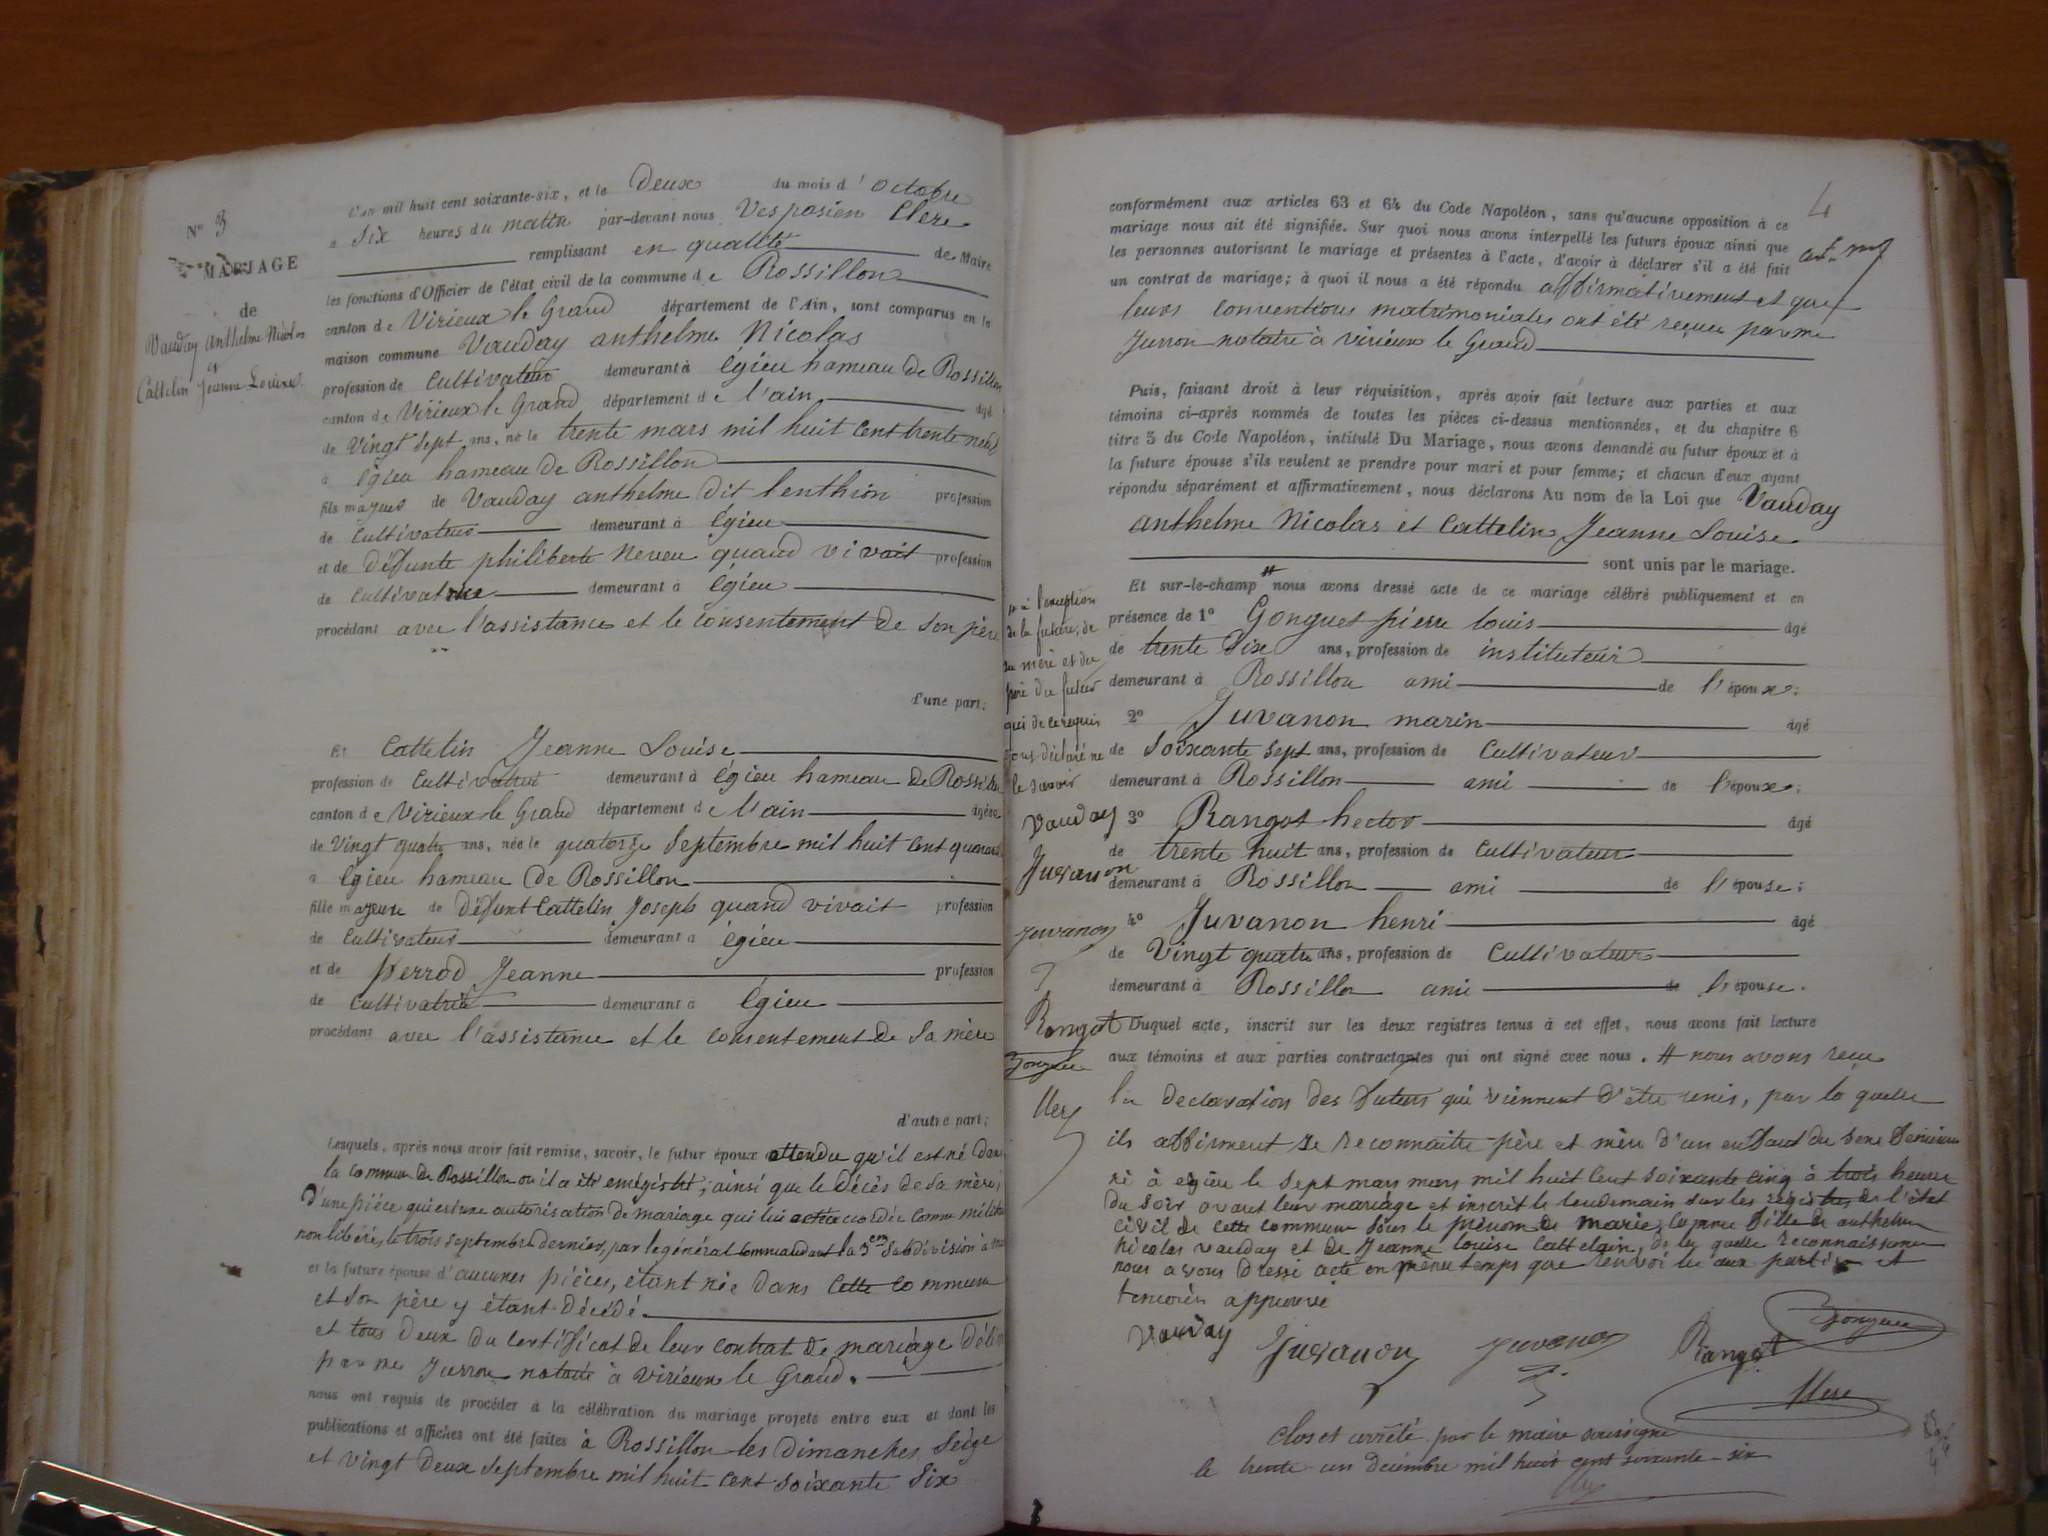 N° 3
MARIAGE
de
Vauday Anthelme Nicolas
et
Cattelin Jeanne Louise.
L'an mil huit cent soixante-six, et le Deux du mois d'octobre
à Six heures du matin par-devant nous Vespasien Clerc
remplissant en qualité de Maire
les fonctions d'Officier de l'état civil de la commune de Rossillon
canton de Virieux le Grand département de l'Ain, sont comparus en la
maison commune Vauday anthelme Nicolas
profession de Cultivateur demeurant à Egieu hameau de Rossillon
canton de Virieux le Grand département de l'ain, âgé
de Vingt Sept ans, né le trente mars mil huit cent trente neuf
à Egieu hameau de Rossillon
fils majeur de Vauday anthelme dit Lenthion profession
de Cultivateur demeurant à Egieu
et de défunte philiberte Neveu quand vivait profession
de Cultivatrice demeurant à Egieu
procédant avec l'assistance et le consentement de Son père
d'une part;
Et Cattelin Jeanne Louise
profession de Cultivateur demeurant à Egieu hameau de Rossillon
canton de Virieux le Grand département de l'ain âgée
de Vingt quatre ans, née le quatorze Septembre mil huit cent quarante
à Egieu hameau de Rossillon
fille majeure de défunt Cattelin Joseph quand vivait profession
de Cultivateur demeurant à Egieu
et de perrod Jeanne profession
de Cultivatrice demeurant à Egieu
procédant avec l'assistance et le consentement de Sa mère
d'autre part;
Lesquels, après nous avoir fait remise, savoir, le futur époux attendu qu'il est né dans
la commune de Rossillon où il a été enrégistré; ainsi que le décès de Sa mère;
D'une pièce qui est une autorisation de mariage qui lui a été accordée comme militaire
non libéré, le trois septembre dernier, par le général commandant la 3em Subdivision à
et la future épouse d'aucunes pièces, étant née dans Cette commune
et Son père y étant décédé.
et tous deux du certificat de leur contrat de mariage Délivré
par me Jurron notaire à Virieux le Grand.
nous ont requis de procéder à la célébration du mariage projeté entre eux et dont les
publications et affiches ont été faites à Rossillon les Dimanches Seize
et vingt deux Septembre mil huit cent soixante Six
4
conformément aux articles 63 et 64 du Code Napoléon, sans qu'aucune opposition à ce
mariage nous ait été signifiée. Sur quoi nous avons interpellé les futurs époux ainsi que
les personnes autorisant le mariage et présentes à l'acte, d'avoir à déclarer s'il a été fait
un contrat de mariage; à quoi il nous a été répondu affirmativement et que
leurs conventions matrimoniales ont été reçues par me
Jurron notaire à virieux le Grand
Puis, faisant droit à leur réquisition, après avoir fait lecture aux parties et aux
témoins ci-après nommés de toutes les pièces ci-dessus mentionnées, et du chapitre 6
titre 5 du Code Napoléon, intitulé Du Mariage, nous avons demandé au futur époux et à
la future épouse s'ils veulent se prendre pour mari et pour femme; et chacun d'eux ayant
répondu séparément et affirmativement, nous déclarons Au nom de la Loi que Vauday
anthelme Nicolas et Cattelin Jeanne Louise
sont unis par le mariage.
Et sur-le-champ # nous avons dressé acte de ce mariage célébré publiquement et en
présence de 1° Gonguet pierre louis âgé
de trente Six ans, profession de instituteur
demeurant à Rossillon ami de l'époux;
2° Juvanon marin âgé
de Soixante Sept ans, profession de Cultivateur
demeurant à Rossillon ami de l'époux;
3° Rangot hector âgé
de trente huit ans, profession de Cultivateur
demeurant à Rossillon ami de l'épouse;
4° Juvanon henri âgé
de Vingt quatre ans, profession de Cultivateur
demeurant à Rossillon ami de l'épouse.
Duquel acte, inscrit sur les deux registres tenus à cet effet, nous avons fait lecture
aux témoins et aux parties contractantes qui ont signé avec nous. # nous avons reçu
la déclaration des futurs qui viennent d'être unis, par la quelle
ils affirment se reconnaitre père et mère d'un enfant du sexe féminin
né à egieu le Sept mars mil huit cent Soixante cinq à trois heures
du Soir avant leur mariage et inscrit le lendemain sur les registres de l'état
civil de cette commune Sous le prénom de marie, comme fille de anthelme
nicolas vauday et de Jeanne Louise Cattelain, de la quelle reconnaissance
nous avons dressé acte en même temps que renvoi lu aux parties et
temoins approuvé
Vauday Juvanon Juvanon Rangot Gonguet
Clerc
Clos et arrêté par le maire soussigné
le trente un décembre mil huit cent soixante-six
à l'exception
de la future, de
sa mère et du
père du futur
qui de ce requis
nous déclaré ne
le savoir
Vauday
Juvanon
Juvanon
Rangot
Gonguet
Clerc